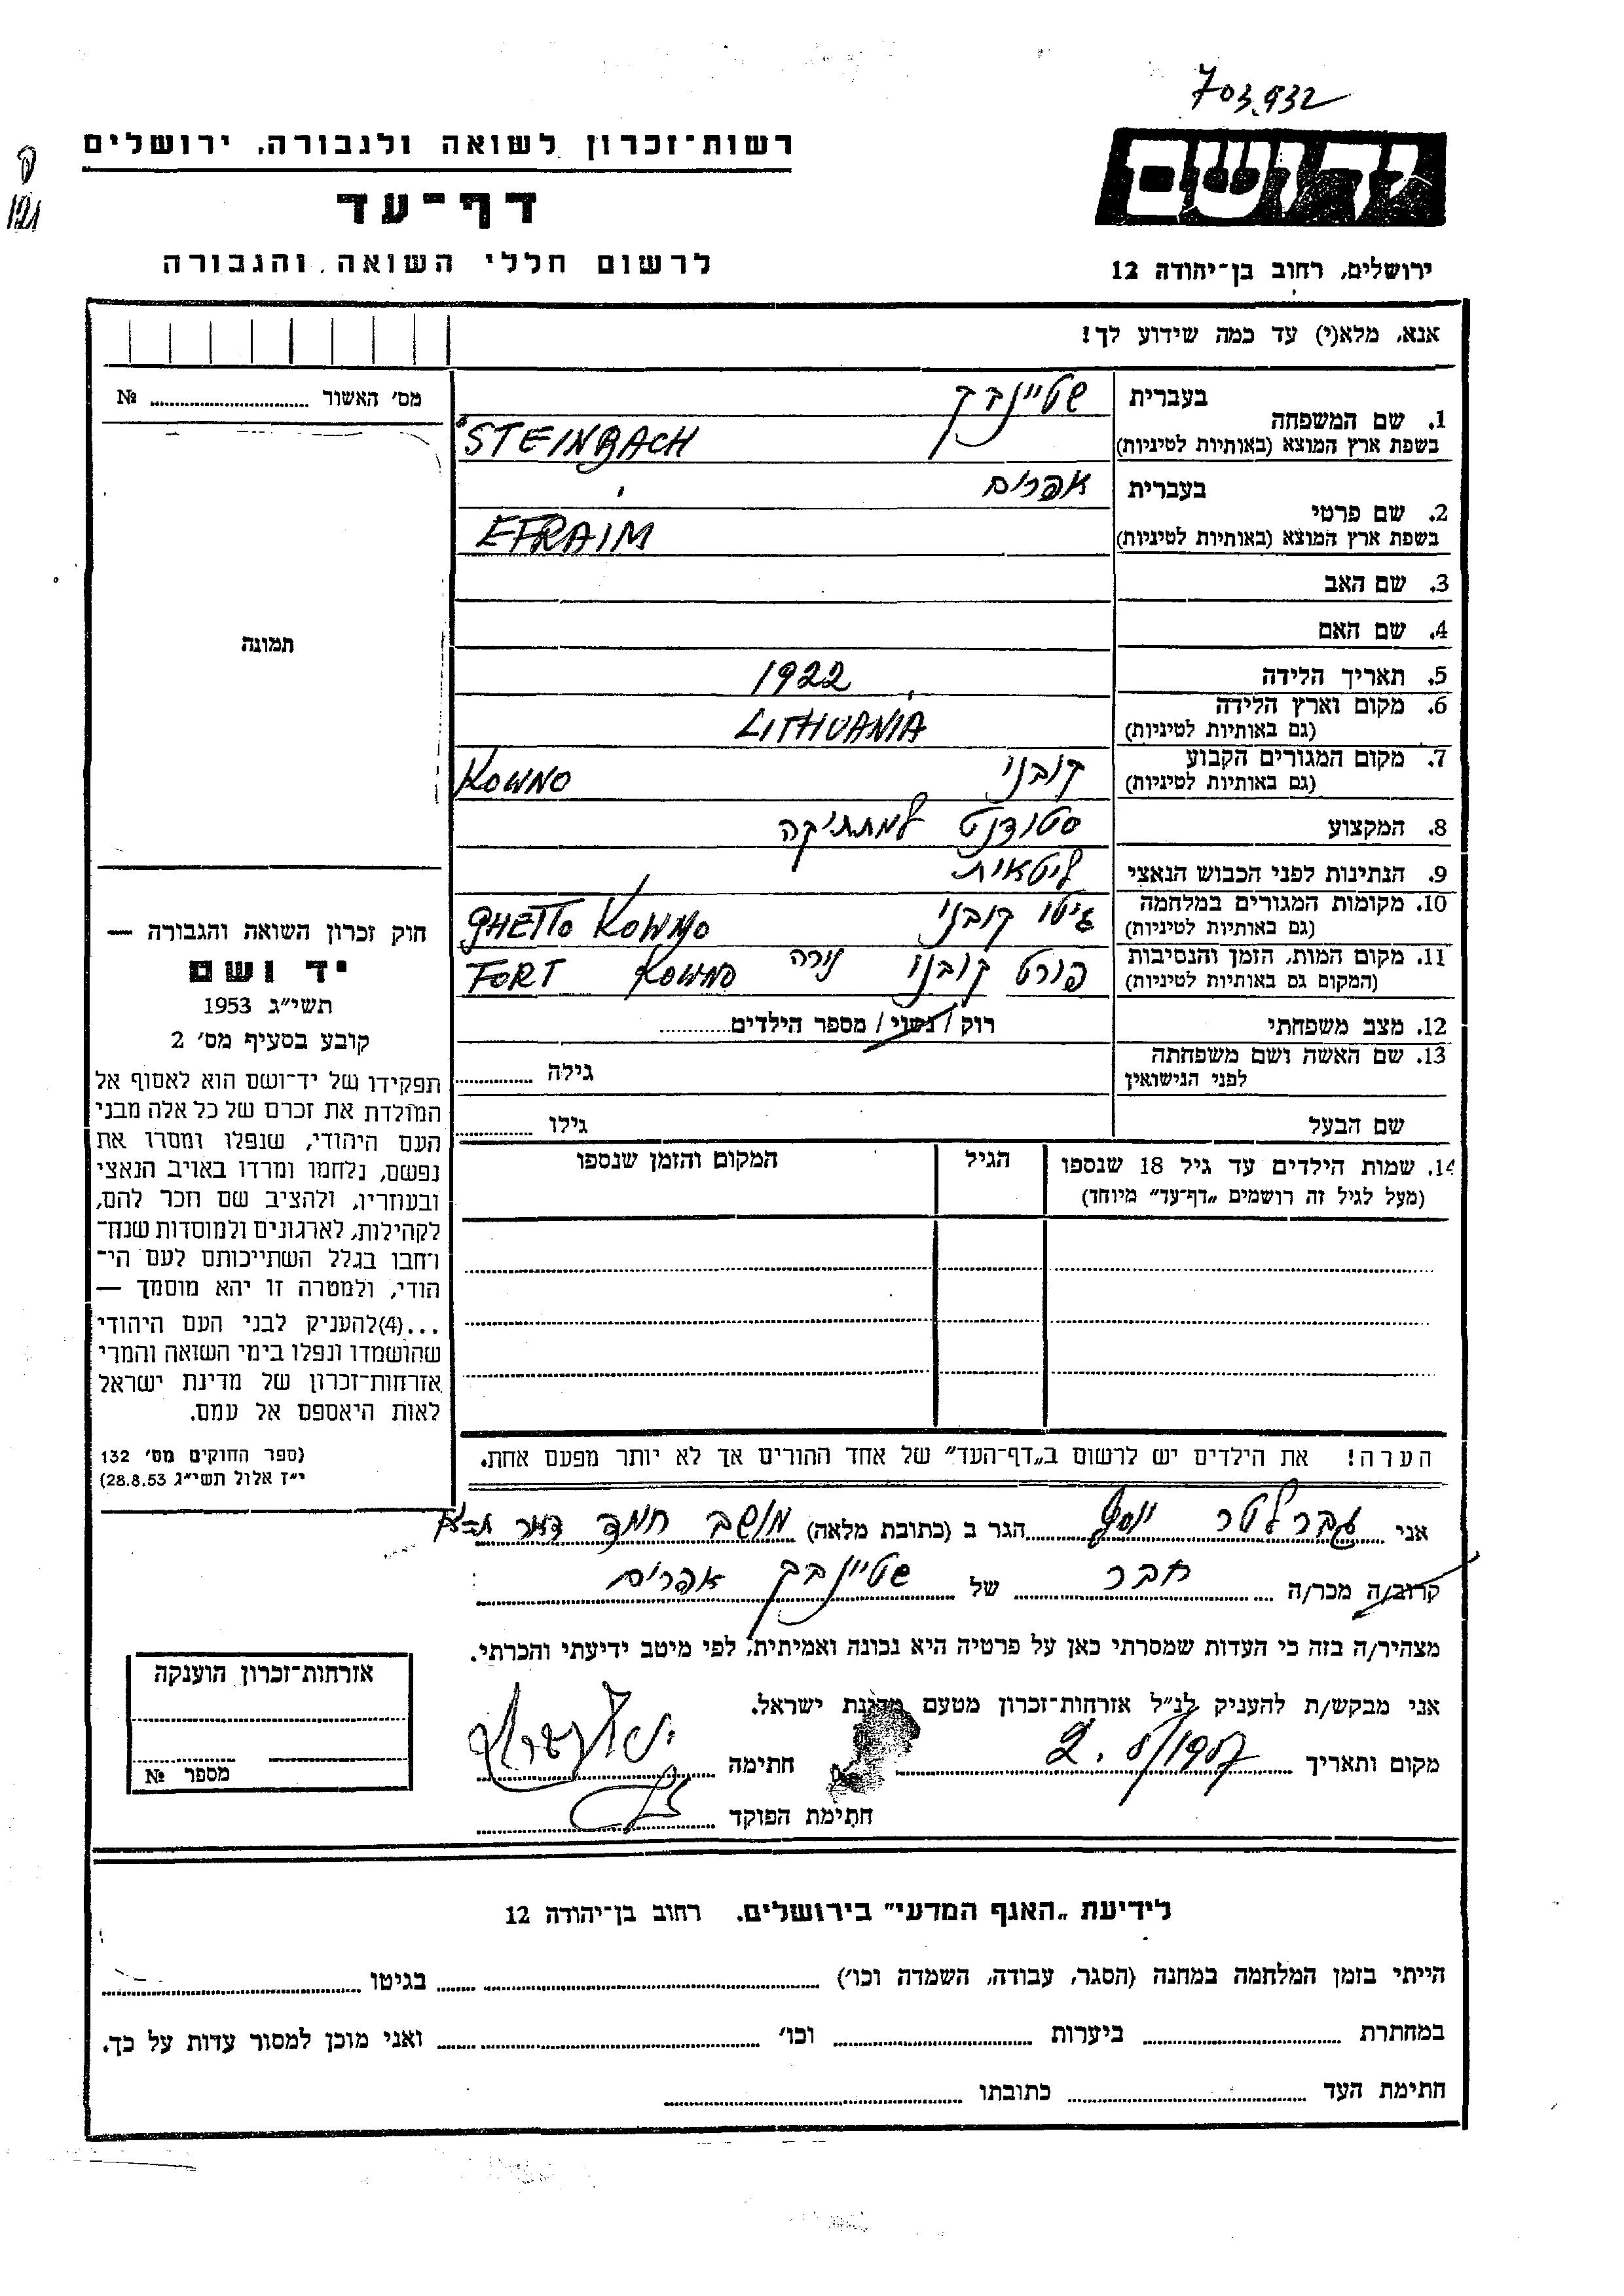 703.932
רשות־זכרון לשואה ולגבורה, ירושלים
דף־עד
לרשום חללי השואה והגבורה
ידושם
ירושלים, רחוב בן־יהודה 12
121
אנא, מלא(י) עד כמה שידוע לך!
מס׳ האשור № 
1. שם המשפחה
בעברית שטיינבך
בשפת ארץ המוצא (באותיות לטיניות) STEINBACH
2. שם פרטי
בעברית אפרים
בשפת ארץ המוצא (באותיות לטיניות) EFRAIM
3. שם האב
4. שם האם
תמונה
5. תאריך הלידה 1922
6. מקום וארץ הלידה LITHUANIA
(גם באותיות לטיניות)
7. מקום המגורים הקבוע קובני KOWNO
(גם באותיות לטיניות)
8. המקצוע סטודנט למתתיקה
9. הנתינות לפני הכבוש הנאצי ליטאית
10. מקומות המגורים במלחמה גיטו קובני GHETTO KOWNO
(גם באותיות לטיניות)
11. מקום המות, הזמן והנסיבות פורט קובני נורה FORT KOWNO
(המקום גם באותיות לטיניות)
12. מצב משפחתי רוק / נשוי / מספר הילדים
13. שם האשה ושם משפחתה גילה
לפני הנישואין
שם הבעל גילו
14. שמות הילדים עד גיל 18 שנספו הגיל המקום והזמן שנספו
(מעל לגיל זה רושמים „דף־עד” מיוחד)
חוק זכרון השואה והגבורה —
יד ושם
תשי״ג 1953
קובע בסעיף מס׳ 2
תפקידו של יד־ושם הוא לאסוף אל
המולדת את זכרם של כל אלה מבני
העם היהודי, שנפלו ומסרו את
נפשם, נלחמו ומרדו באויב הנאצי
ובעוזריו, ולהציב שם וזכר להם,
לקהילות, לארגונים ולמוסדות שנח־
רחבו בגלל השתייכותם לעם הי־
הודי, ולמטרה זו יהא מוסמך —
...(4)להעניק לבני העם היהודי
שהושמדו ונפלו בימי השואה והמרי
אזרחות־זכרון של מדינת ישראל
לאות היאספם אל עמם.
(ספר החוקים מס׳ 132
י״ז אלול תשי״ג 28.8.53)
הערה! את הילדים יש לרשום ב„דף־העד” של אחד ההורים אך לא יותר מפעם אחת.
אני יוסף הגר ב (כתובת מלאה) מושב חמד דואר
קרוב/ה מכר/ה חבר של שטיינבך אפרים
מצהיר/ה בזה כי העדות שמסרתי כאן על פרטיה היא נכונה ואמיתית, לפי מיטב ידיעתי והכרתי.
אני מבקש/ת להעניק לנ״ל אזרחות־זכרון מטעם מדינת ישראל.
מקום ותאריך חתימה
חתימת הפוקד
אזרחות־זכרון הוענקה
מספר №
לידיעת „האגף המדעי” בירושלים. רחוב בן־יהודה 12
הייתי בזמן המלחמה במחנה (הסגר, עבודה, השמדה וכו׳) בגיטו
במחתרת ביערות וכו׳ ואני מוכן למסור עדות על כך.
חתימת העד כתובתו